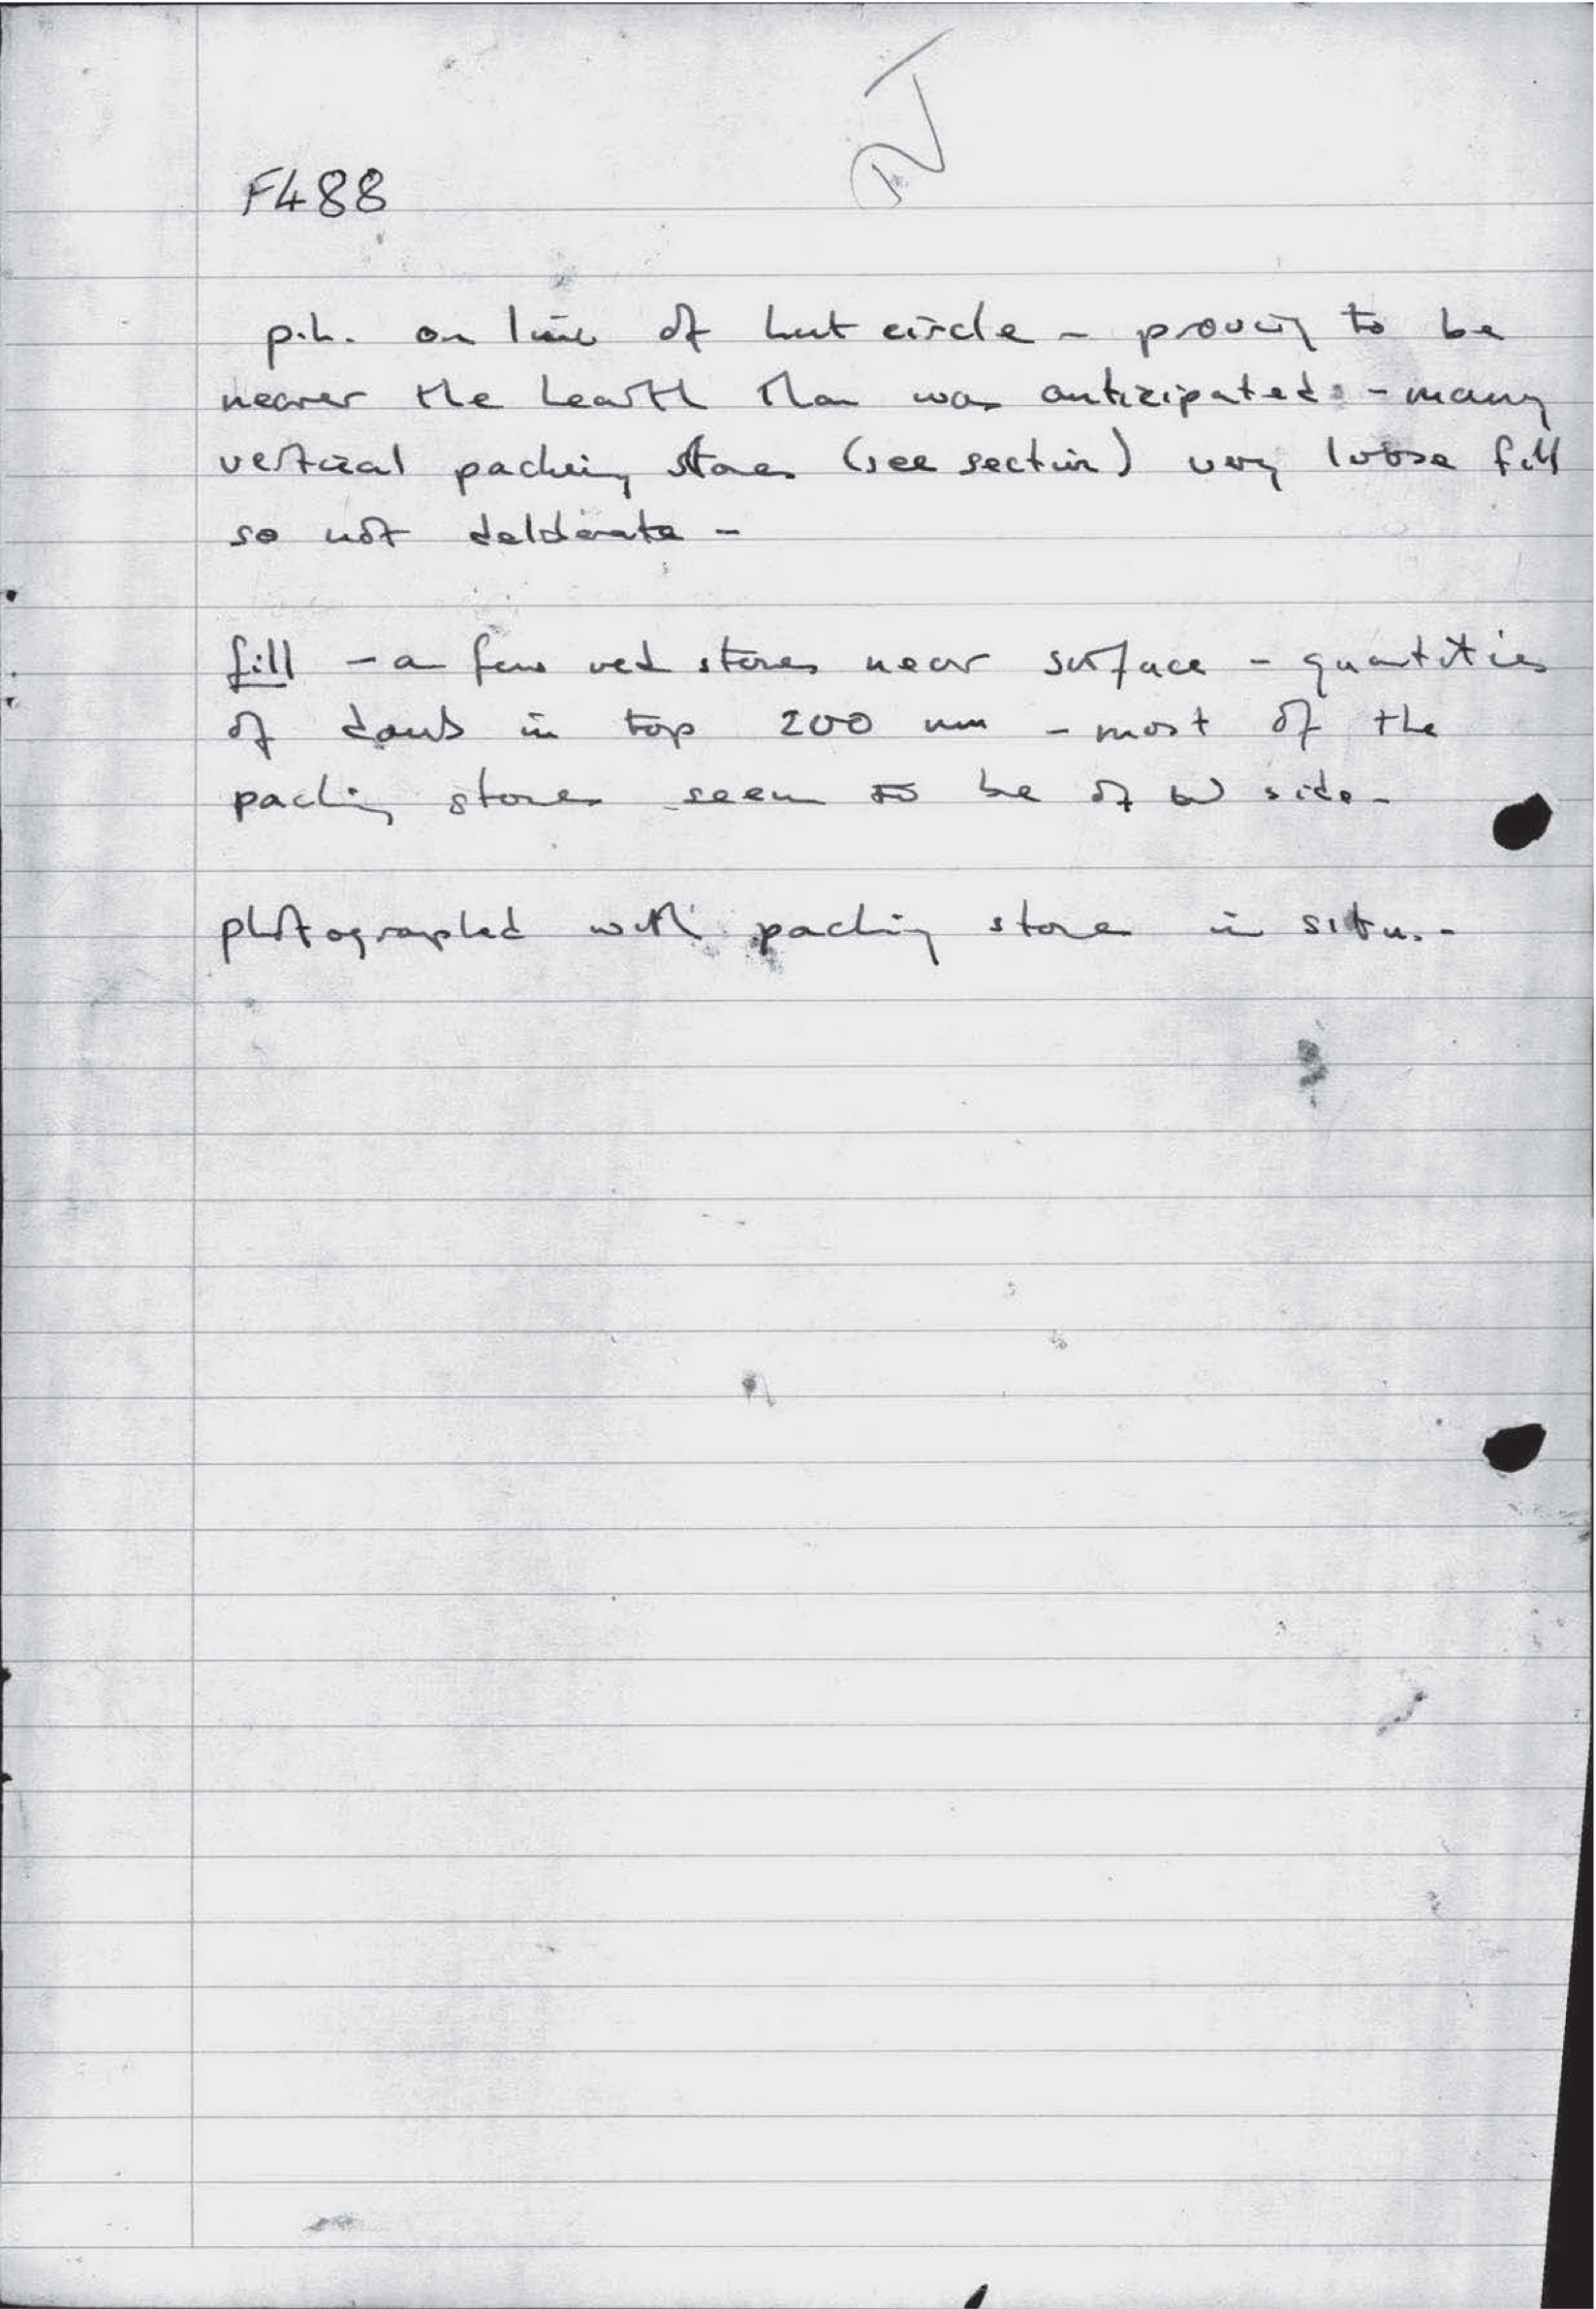 F488
p.h. on line of hut circle - proving to be
nearer the hearth than was anticipated - many
vertical packing stones (see section) very loose fill
so not deliberate -
fill - a few red stones near surface - quantities
of daub in top 200 mm - most of the
packing stones seem to be of W side -
photographed with packing stones in situ. -